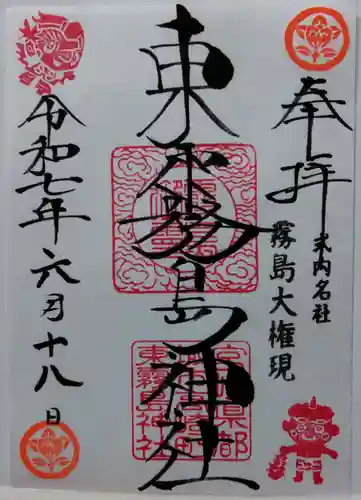 奉拝
式内名社
霧島大権現
東霧島神社
令和七年六月十八日
東霧島神社